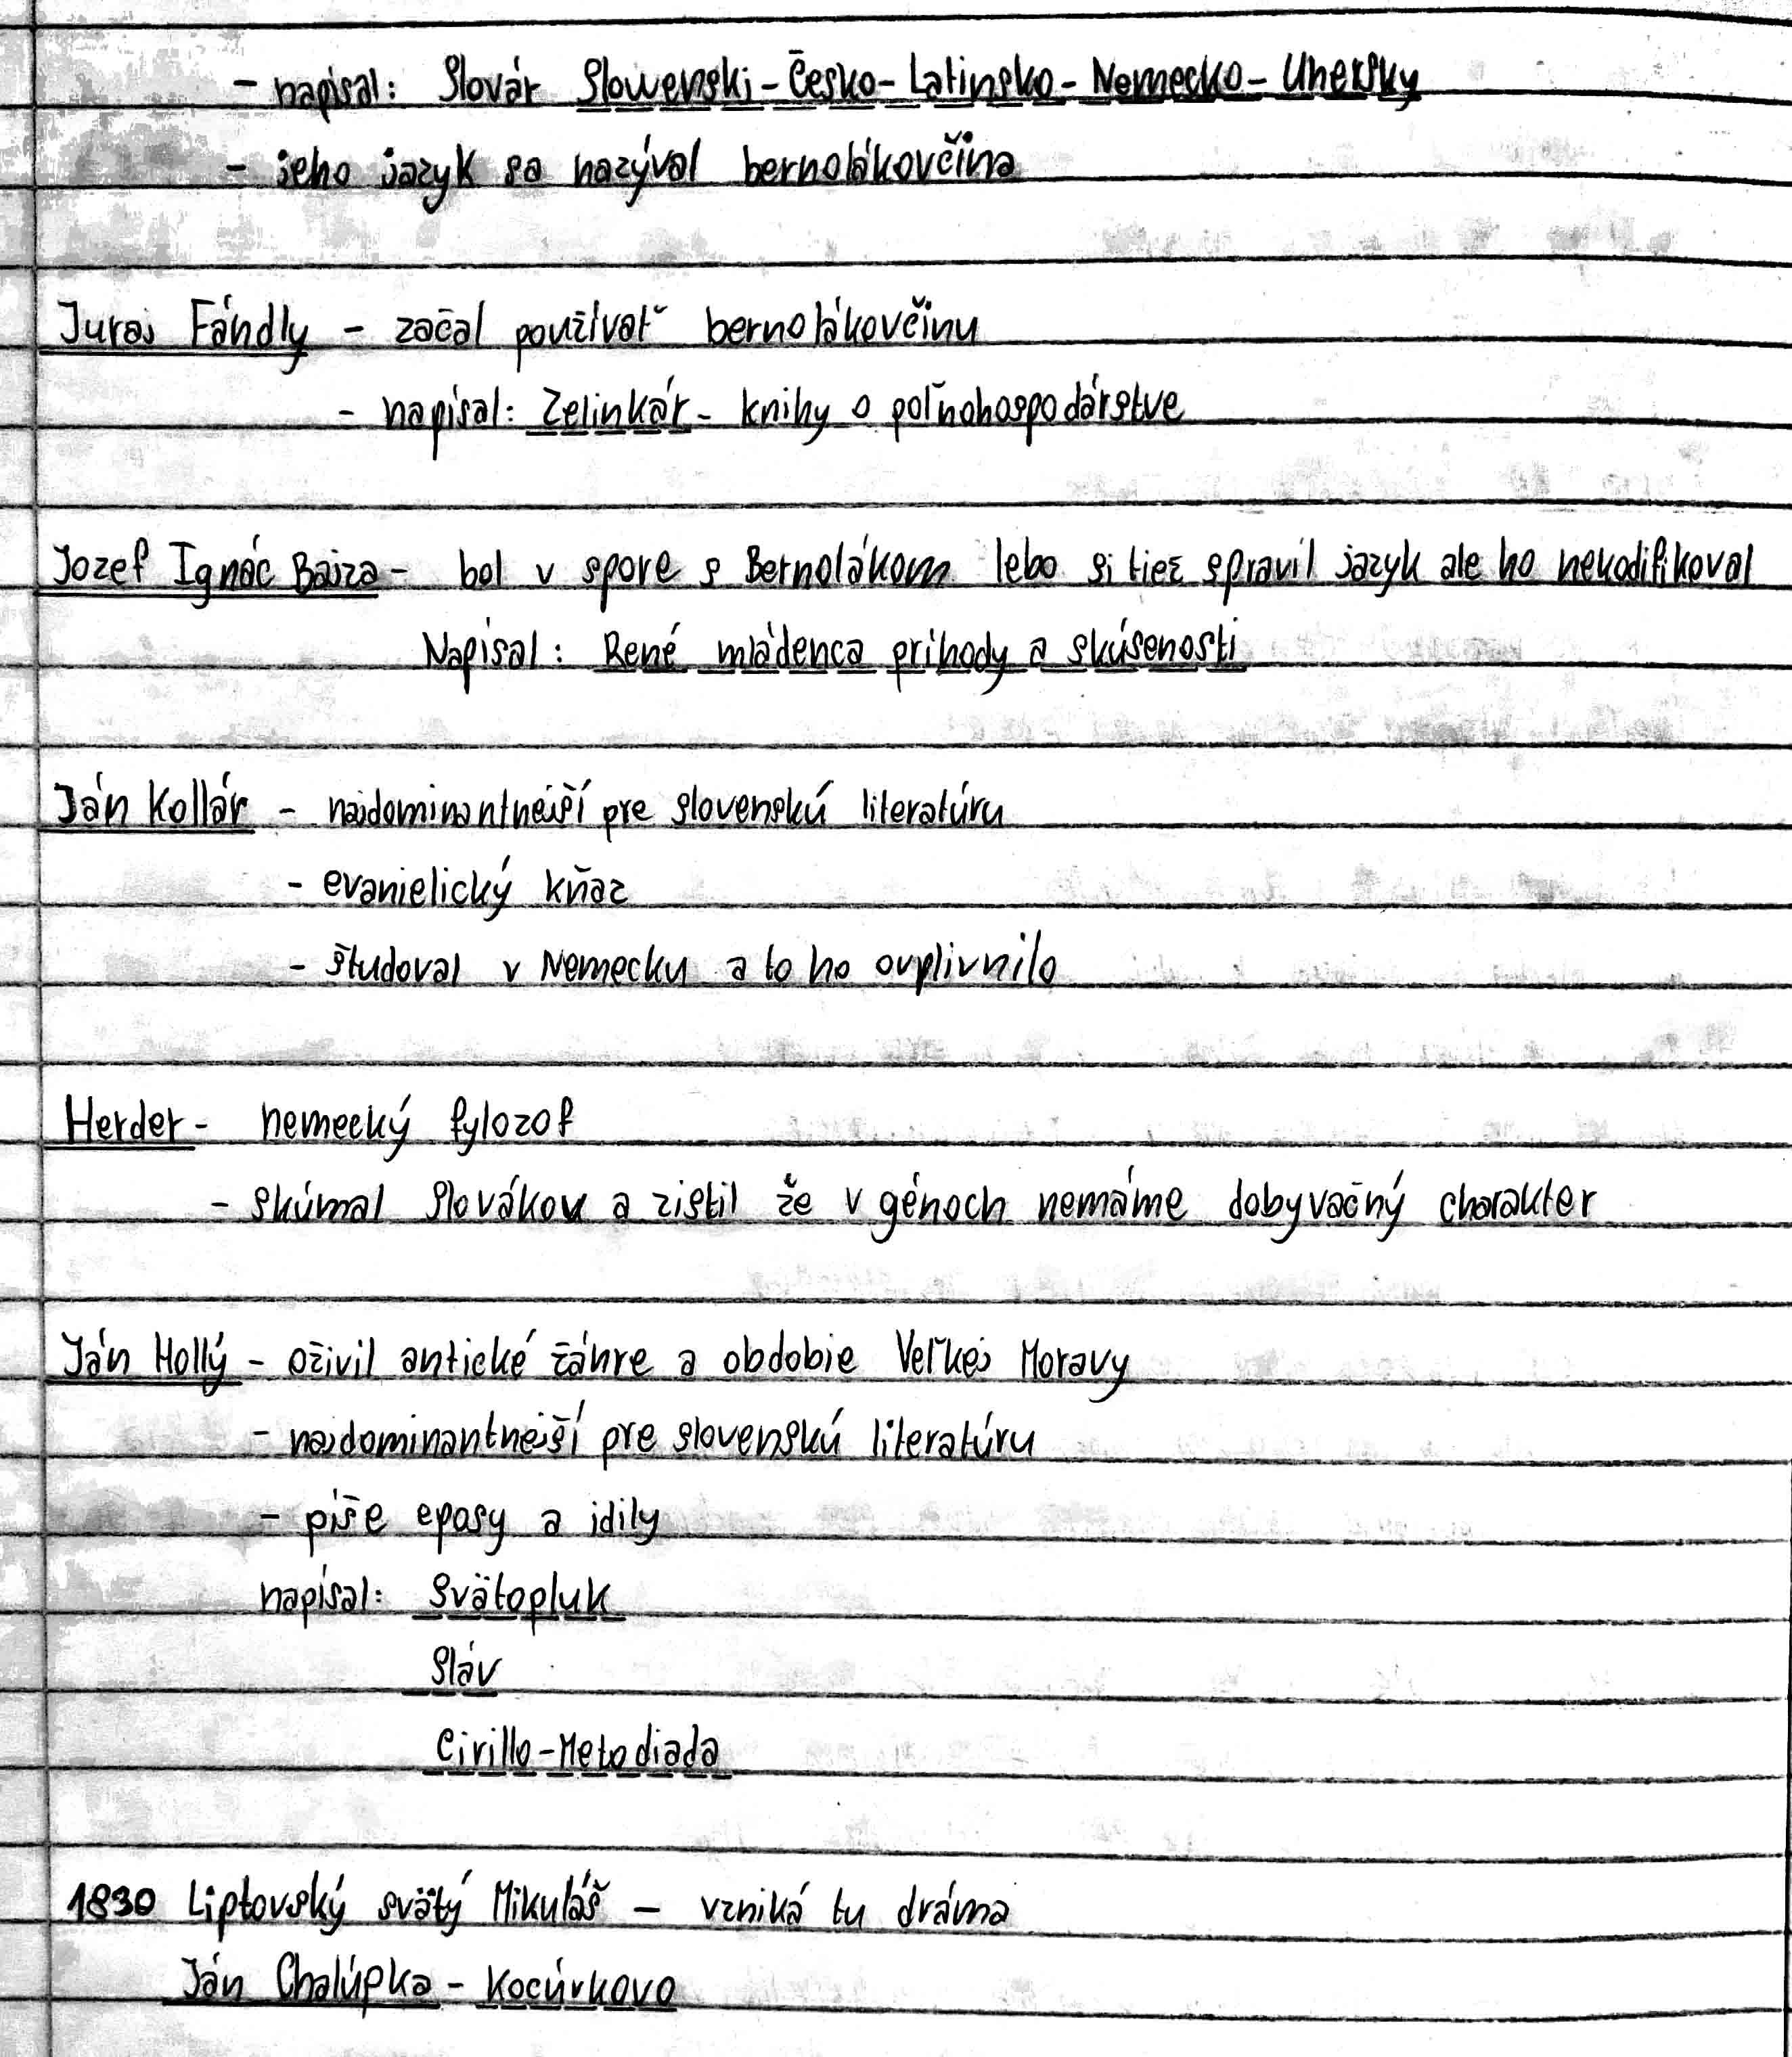 - napísal: Slovár Slowenski-Česko-Latinsko-Nemecko-Uherský
- jeho jazyk sa nazýval bernolákovčina
Juraj Fándly - začal používať bernolákovčinu
- napísal: Zelinkár - knihy o poľnohospodárstve
Jozef Ignác Bajza - bol v spore s Bernolákom lebo si tiež spravil jazyk ale ho nekodifikoval
Napísal: René mládenca príhody a skúsenosti
Ján Kollár - najdominantnejší pre slovenskú literatúru
- evanielický kňaz
- študoval v Nemecku a to ho ovplivnilo
Herder - nemecký fylozof
- skúmal Slovákov a zistil že v génoch nemáme dobyvačný charakter
Ján Hollý - oživil antické žánre a obdobie Veľkej Moravy
- najdominantnejší pre slovenskú literatúru
- píše eposy a idily
napísal: Svätopluk
Sláv
Cirillo-Metodiada
1830 Liptovský svätý Mikuláš - vzniká tu dráma
Ján Chalúpka - Kocúrkovo